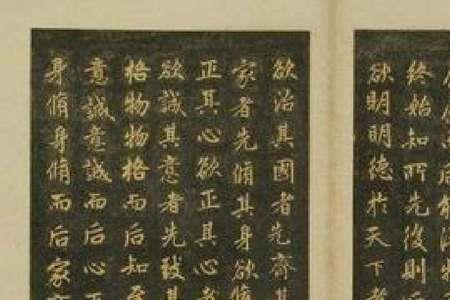 終始知所先後則
欲明明德於天下者
欲治其國者先齊其
家者先脩其身欲脩
正其心欲正其心者
欲誠其意者先致其
格物物格而后知至
意誠意誠而后心正
身脩身脩而后家齊